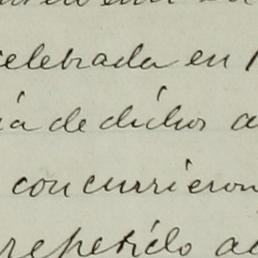 celebrada en
ia de dichos a
concurrieron
repetido a